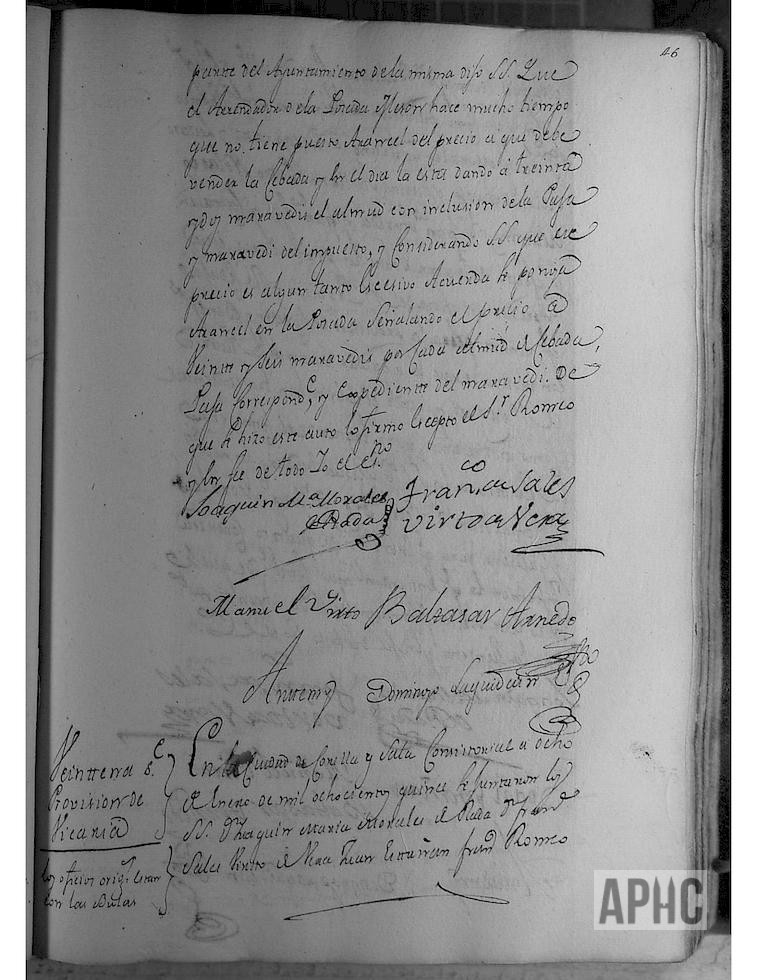 46
parte del Ayuntamiento de la misma dijo S.S. Que
el Arrendador de la Posada Meson hace mucho tiempo
que no tiene puesto Arancel del precio a que debe
vender la Cebada y en el dia la esta dando á treinta
y dos maravedis el almud con inclusion de la Paja
y maravedi del impuesto, y Considerando S.S. que ese
precio es algun tanto Escesivo Acuerda se ponga
Arancel en la Posada Señalando el precio á
Veinte y Seis maravedis por Cada almud de Cebada,
Paja Correspond.e, y Expediente del maravedi. De
que se hizo este auto lo firmo Escepto el S.r Romeo
y en fee de todo Yo el es.no
Joaquin M.a Morales
de Rada
Fran.co de Sales
Virto de Vera
Manuel Virto Baltasar Arnedo
Antemi Domingo Laquidain
Veintena s.e
Provision de
Vicaria
los oficios orig.s estan
con las Bulas
En la Ciudad de Corella y Sala Consistorial a ocho
de Enero de mil ochocientos quince se juntaron los
SS. D.n Joaquin Maria Morales de Rada D.n Fran.co
Sales Virto de Vera Juan Fran.co Romeo
APHC